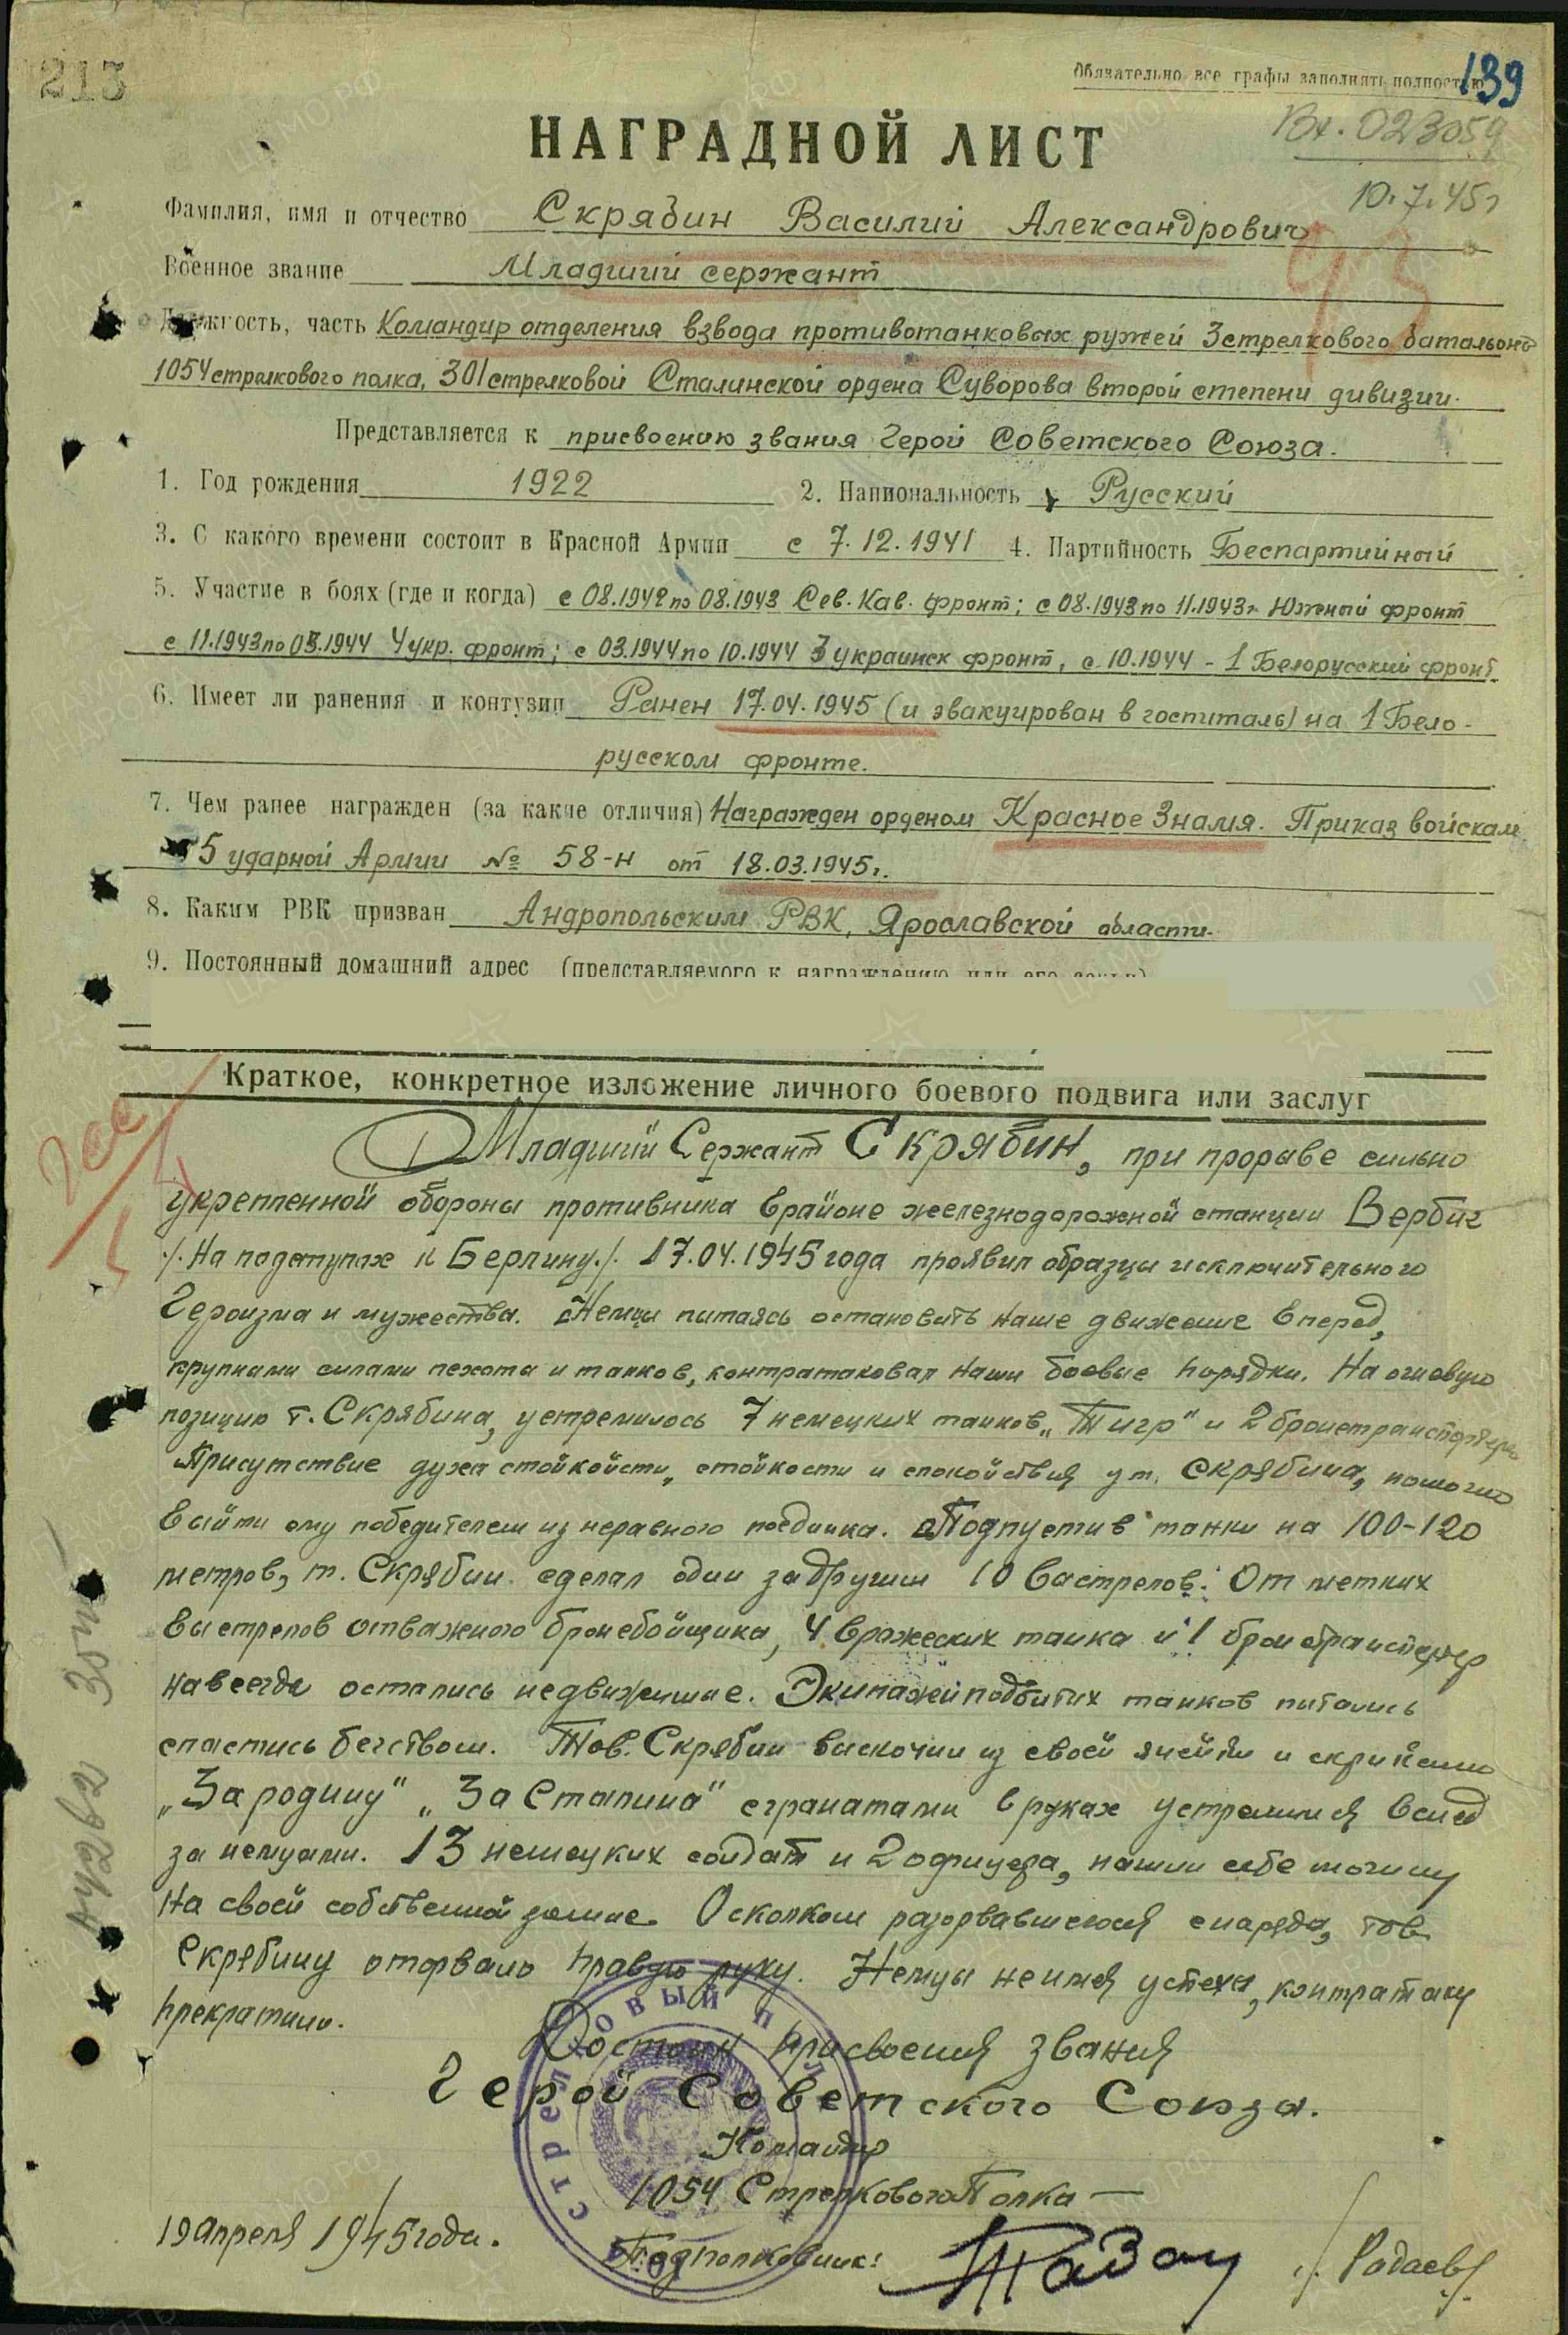 213
Обязательно все графы заполнять полностью
139
НАГРАДНОЙ ЛИСТ
Вх. 023059
10.7.45г
Фамилия, имя и отчество Скрябин Василий Александрович
93
Военное звание Младший сержант
Должность, часть Командир отделения взвода противотанковых ружей 3 стрелкового батальона
1054 стрелкового полка, 301 стрелковой Сталинской ордена Суворова второй степени дивизии.
Представляется к присвоению звания Герой Советского Союза.
1. Год рождения 1922 2. Национальность Русский
3. С какого времени состоит в Красной Армии с 7.12.1941 4. Партийность Беспартийный
5. Участие в боях (где и когда) с 08.1942 по 08.1943 Сев. Кав. фронт; с 08.1943 по 11.1943г. Южный фронт
с 11.1943 по 03.1944 4 укр. фронт; с 03.1944 по 10.1944 3 украинск фронт, с 10.1944 - 1 Белорусский фронт
6. Имеет ли ранения и контузии Ранен 17.04.1945 (и эвакуирован в госпиталь) на 1 Бело-
русском фронте.
7. Чем ранее награжден (за какие отличия) Награжден орденом Красное Знамя. Приказ войскам
5 ударной Армии № 58-н от 18.03.1945г.
8. Каким РВК призван Андропольским РВК, Ярославской области.
9. Постоянный домашний адрес (представляемого к награждению или его семьи)
Краткое, конкретное изложение личного боевого подвига или заслуг
Младший Сержант Скрябин, при прорыве сильно
укрепленной обороны противника в районе железнодорожной станции Вербиг
/. На подступах к Берлину./. 17.04.1945 года проявил образцы исключительного
Героизма и мужества. Немцы пытаясь остановить наше движение вперед,
крупными силами пехоты и танков, контратаковал наши боевые порядки. На огневую
позицию т. Скрябина, устремилось 7 немецких танков „Тигр" и 2 бронетранспортера
Присутствие духа стойкойсти, стойкости и спокойствия у т. Скрябина, помогло
выйти ему победителем из неравного поединка. Подпустив танки на 100-120
метров, т. Скрябин сделал один за другим 10 выстрелов. От метких
выстрелов отважного бронебойщика, 4 вражеских танка и 1 бронетранспортер
навсегда остались недвижимые. Экипажи подбитых танков пытались
спастись бегством. Тов. Скрябин выскочил из своей ячейки и с криками
„За родину" „За Сталина" с гранатами в руках устремился вслед
за немцами. 13 немецких солдат и 2 офицера, нашли себе могилу
на своей собственной земле. Осколком разорвавшегося снаряда, тов
Скрябину оторвало правую руку. Немцы не имея успеха, контратаку
прекратили.
Достоин присвоения звания
Герой Советского Союза.
Командир
1054 Стрелкового Полка —
19 апреля 1945 года.
Подполковник:
/. Радаев /.